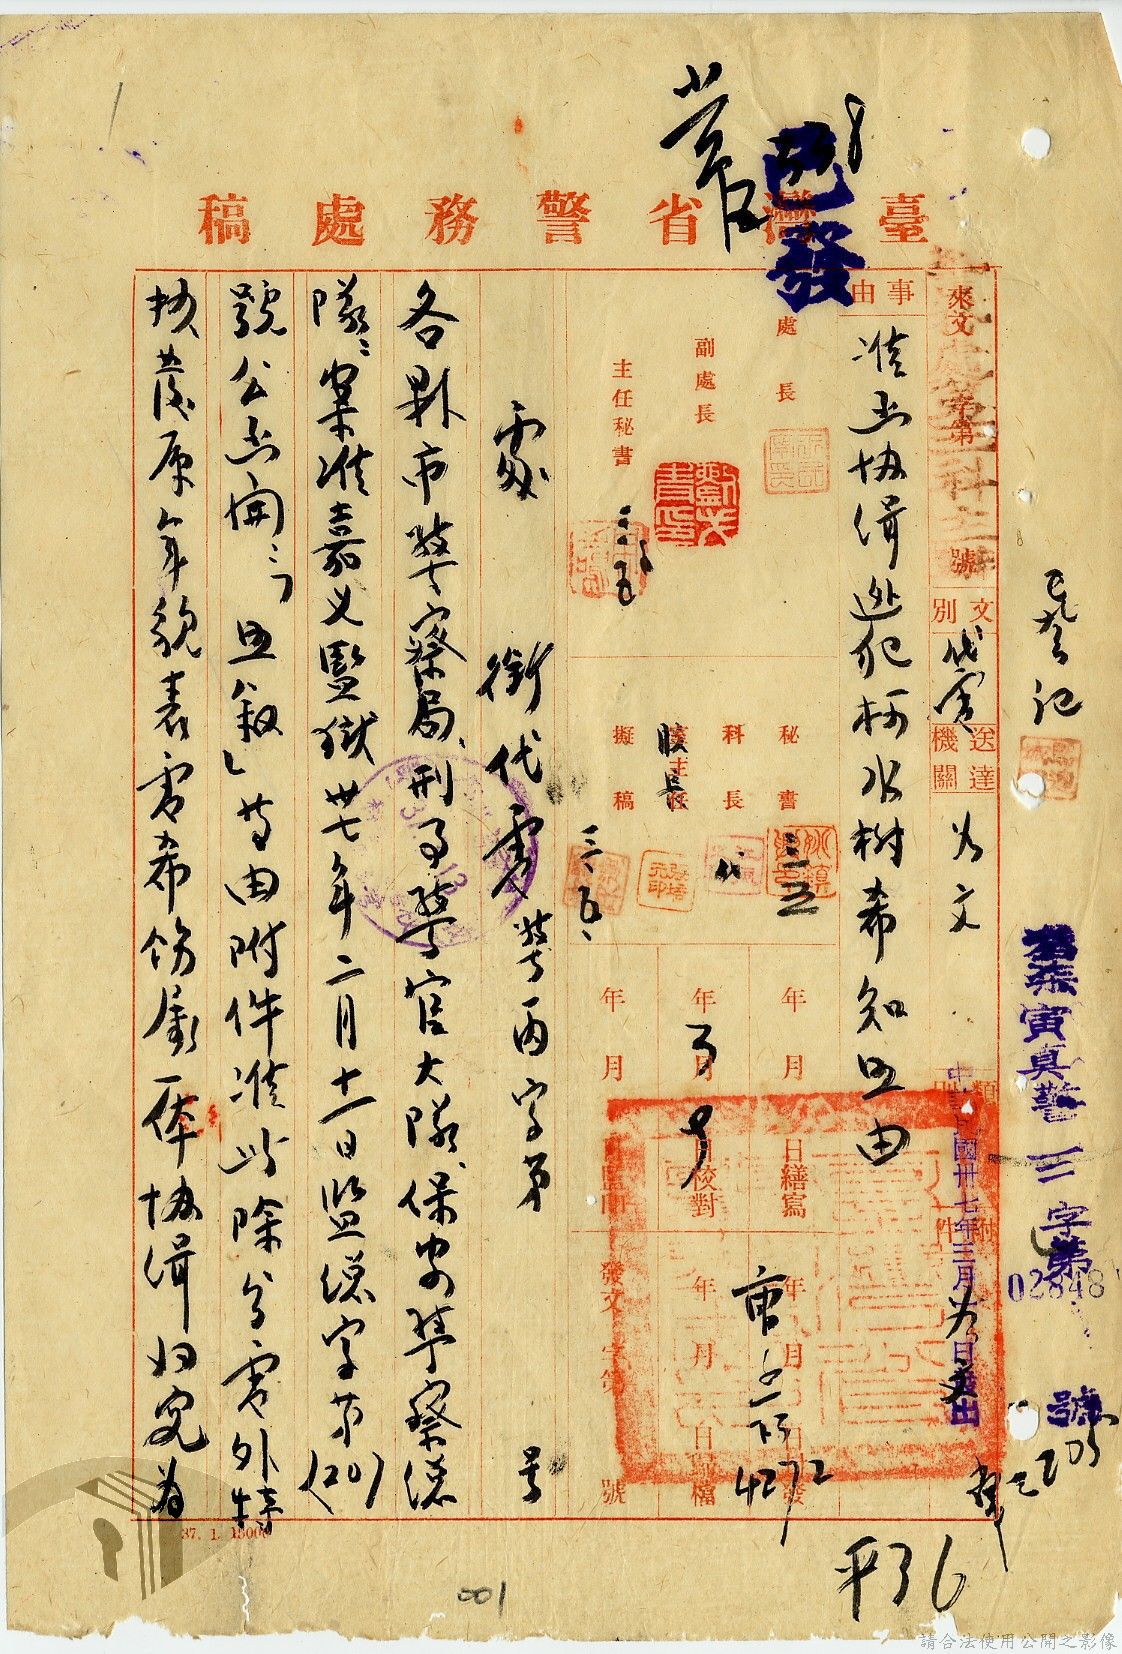 已發
臺灣省警務處稿
來文
字第
號
文別
代電
送達機關
如文
類別
附件
事由
准函協緝逃犯柯水樹希知照由
處長
副處長
主任秘書
秘書
科長
代
股長
主任
擬稿
年 月 日繕寫
年 月 日校對
年 月 日蓋印
年 月 日發
年 月 日歸檔
發文 字第 號
中華民國卅七年三月九日發出
寅真警三字第02848號
已登記
處銜代電 警丙字第 號
各縣市警察局、刑事警官大隊、保安警察總
隊：案准嘉義監獄卅七年二月十一日監總字第(20)
號公函開：「照敘」等由附件准此除分電外特
抄發原年貌表電希飭屬一体協緝归究為
37. 1. 15000
001
4272
請合法使用公開之影像